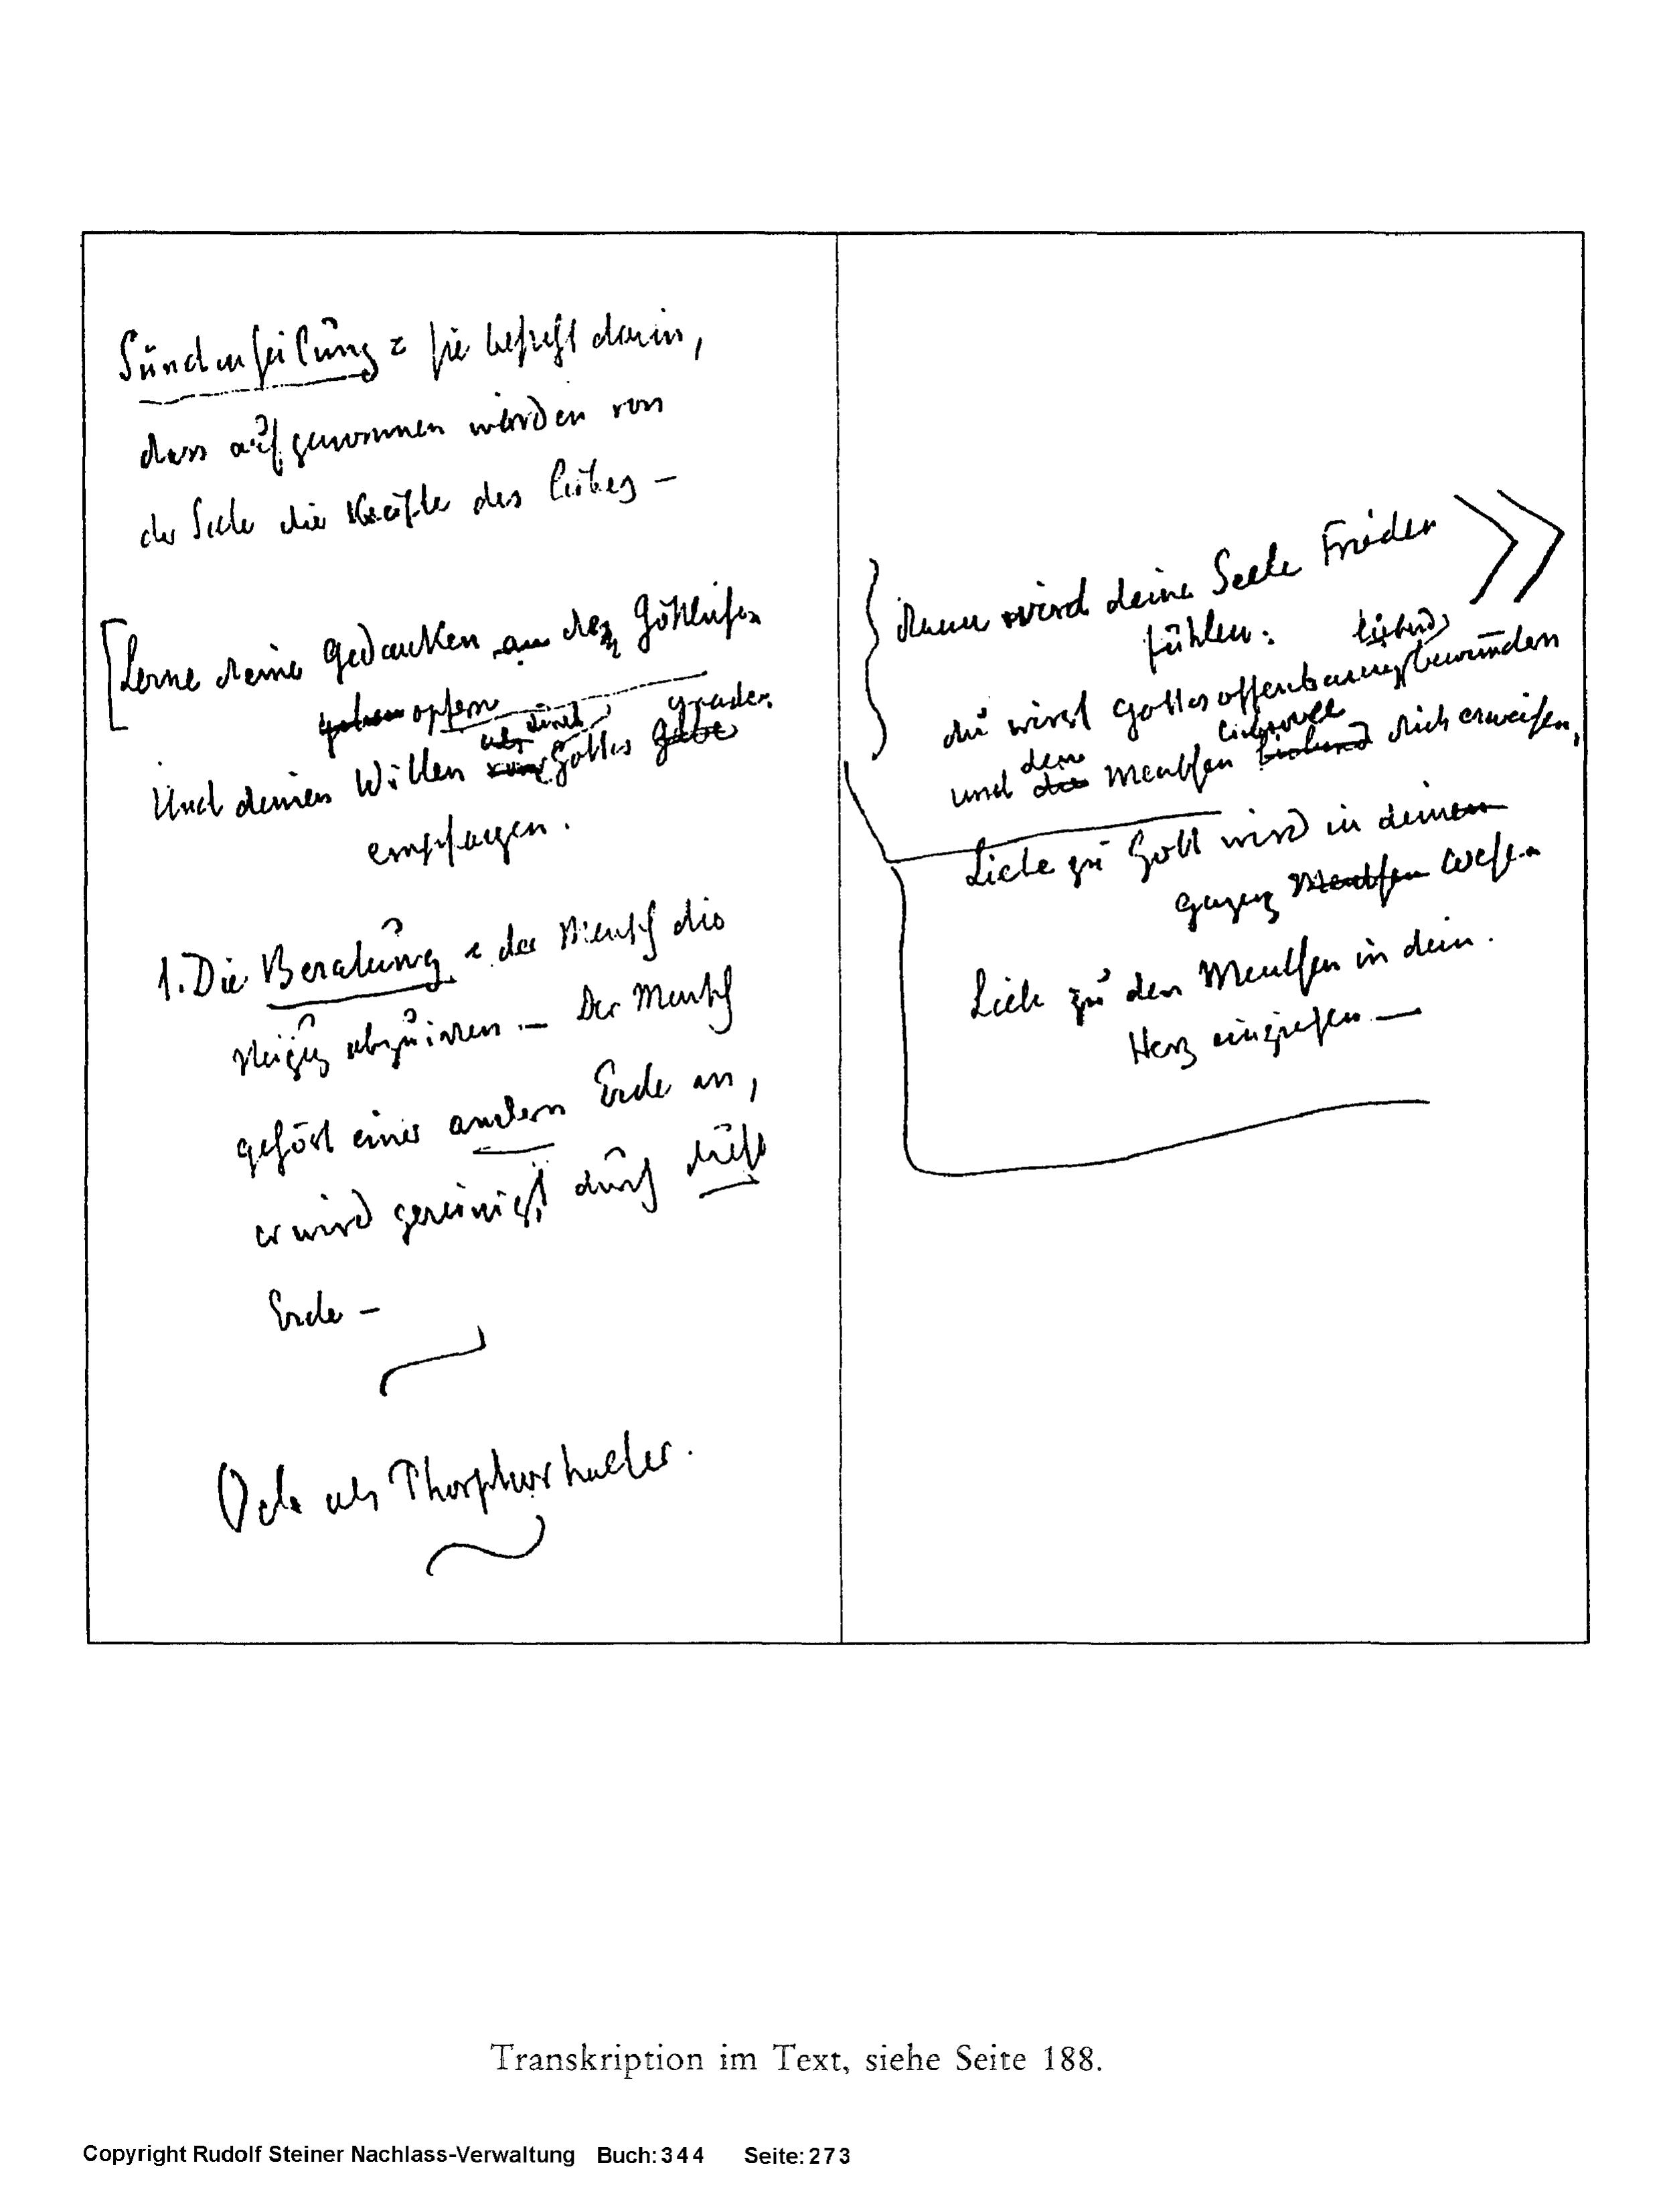 Sündenheilung = sie besteht darin,
dass aufgenommen werden von
der Seele die Kräfte des Leibes –
Lerne deine Gedanken an den Göttlichen
geben opfern
durch Gnade
Und deinen Willen Gottes Gabe
empfangen.
1. Die Beratung = der Mensch die
Neigung abzuirren – Der Mensch
gehört einer andern Erde an,
er wird gereinigt durch diese
Erde –
Oele als Phosphorhalter.
dann wird deine Seele Frieden
fühlen: liebend
du wirst Gottesoffenbarung bewundern
dem liebevoll
und die Menschen liebend dich erweisen,
Liebe zu Gott wird in deinem
ganzen Menschen Wesen
Liebe zu den Menschen in dein.
Herz einziehen –
Transkription im Text, siehe Seite 188.
Copyright Rudolf Steiner Nachlass-Verwaltung Buch:344 Seite:273